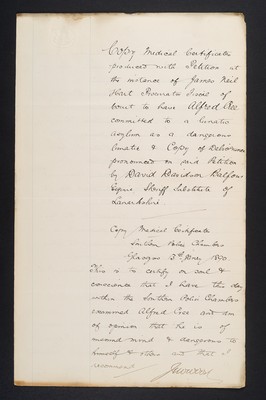 Copy Medical Certificates
produced with Petition at
the instance of James Neil
Hart Procurator Fiscal of
Court to have Alfred
committed to a lunatic
asylum as a dangerous
lunatic & Copy of Deliverance
pronounced on said Petition
by David Davidson Balfour
Esquire Sheriff Substitute of
Lanarkshire
Copy Medical Certificate
Southern Police Chambers
Glasgow May 1870
This is to certify on soul &
conscience that I have this day
within the Southern Police Chambers
examined Alfred and am
of opinion that he is of
unsound mind & dangerous to
himself & others and that I
recommend